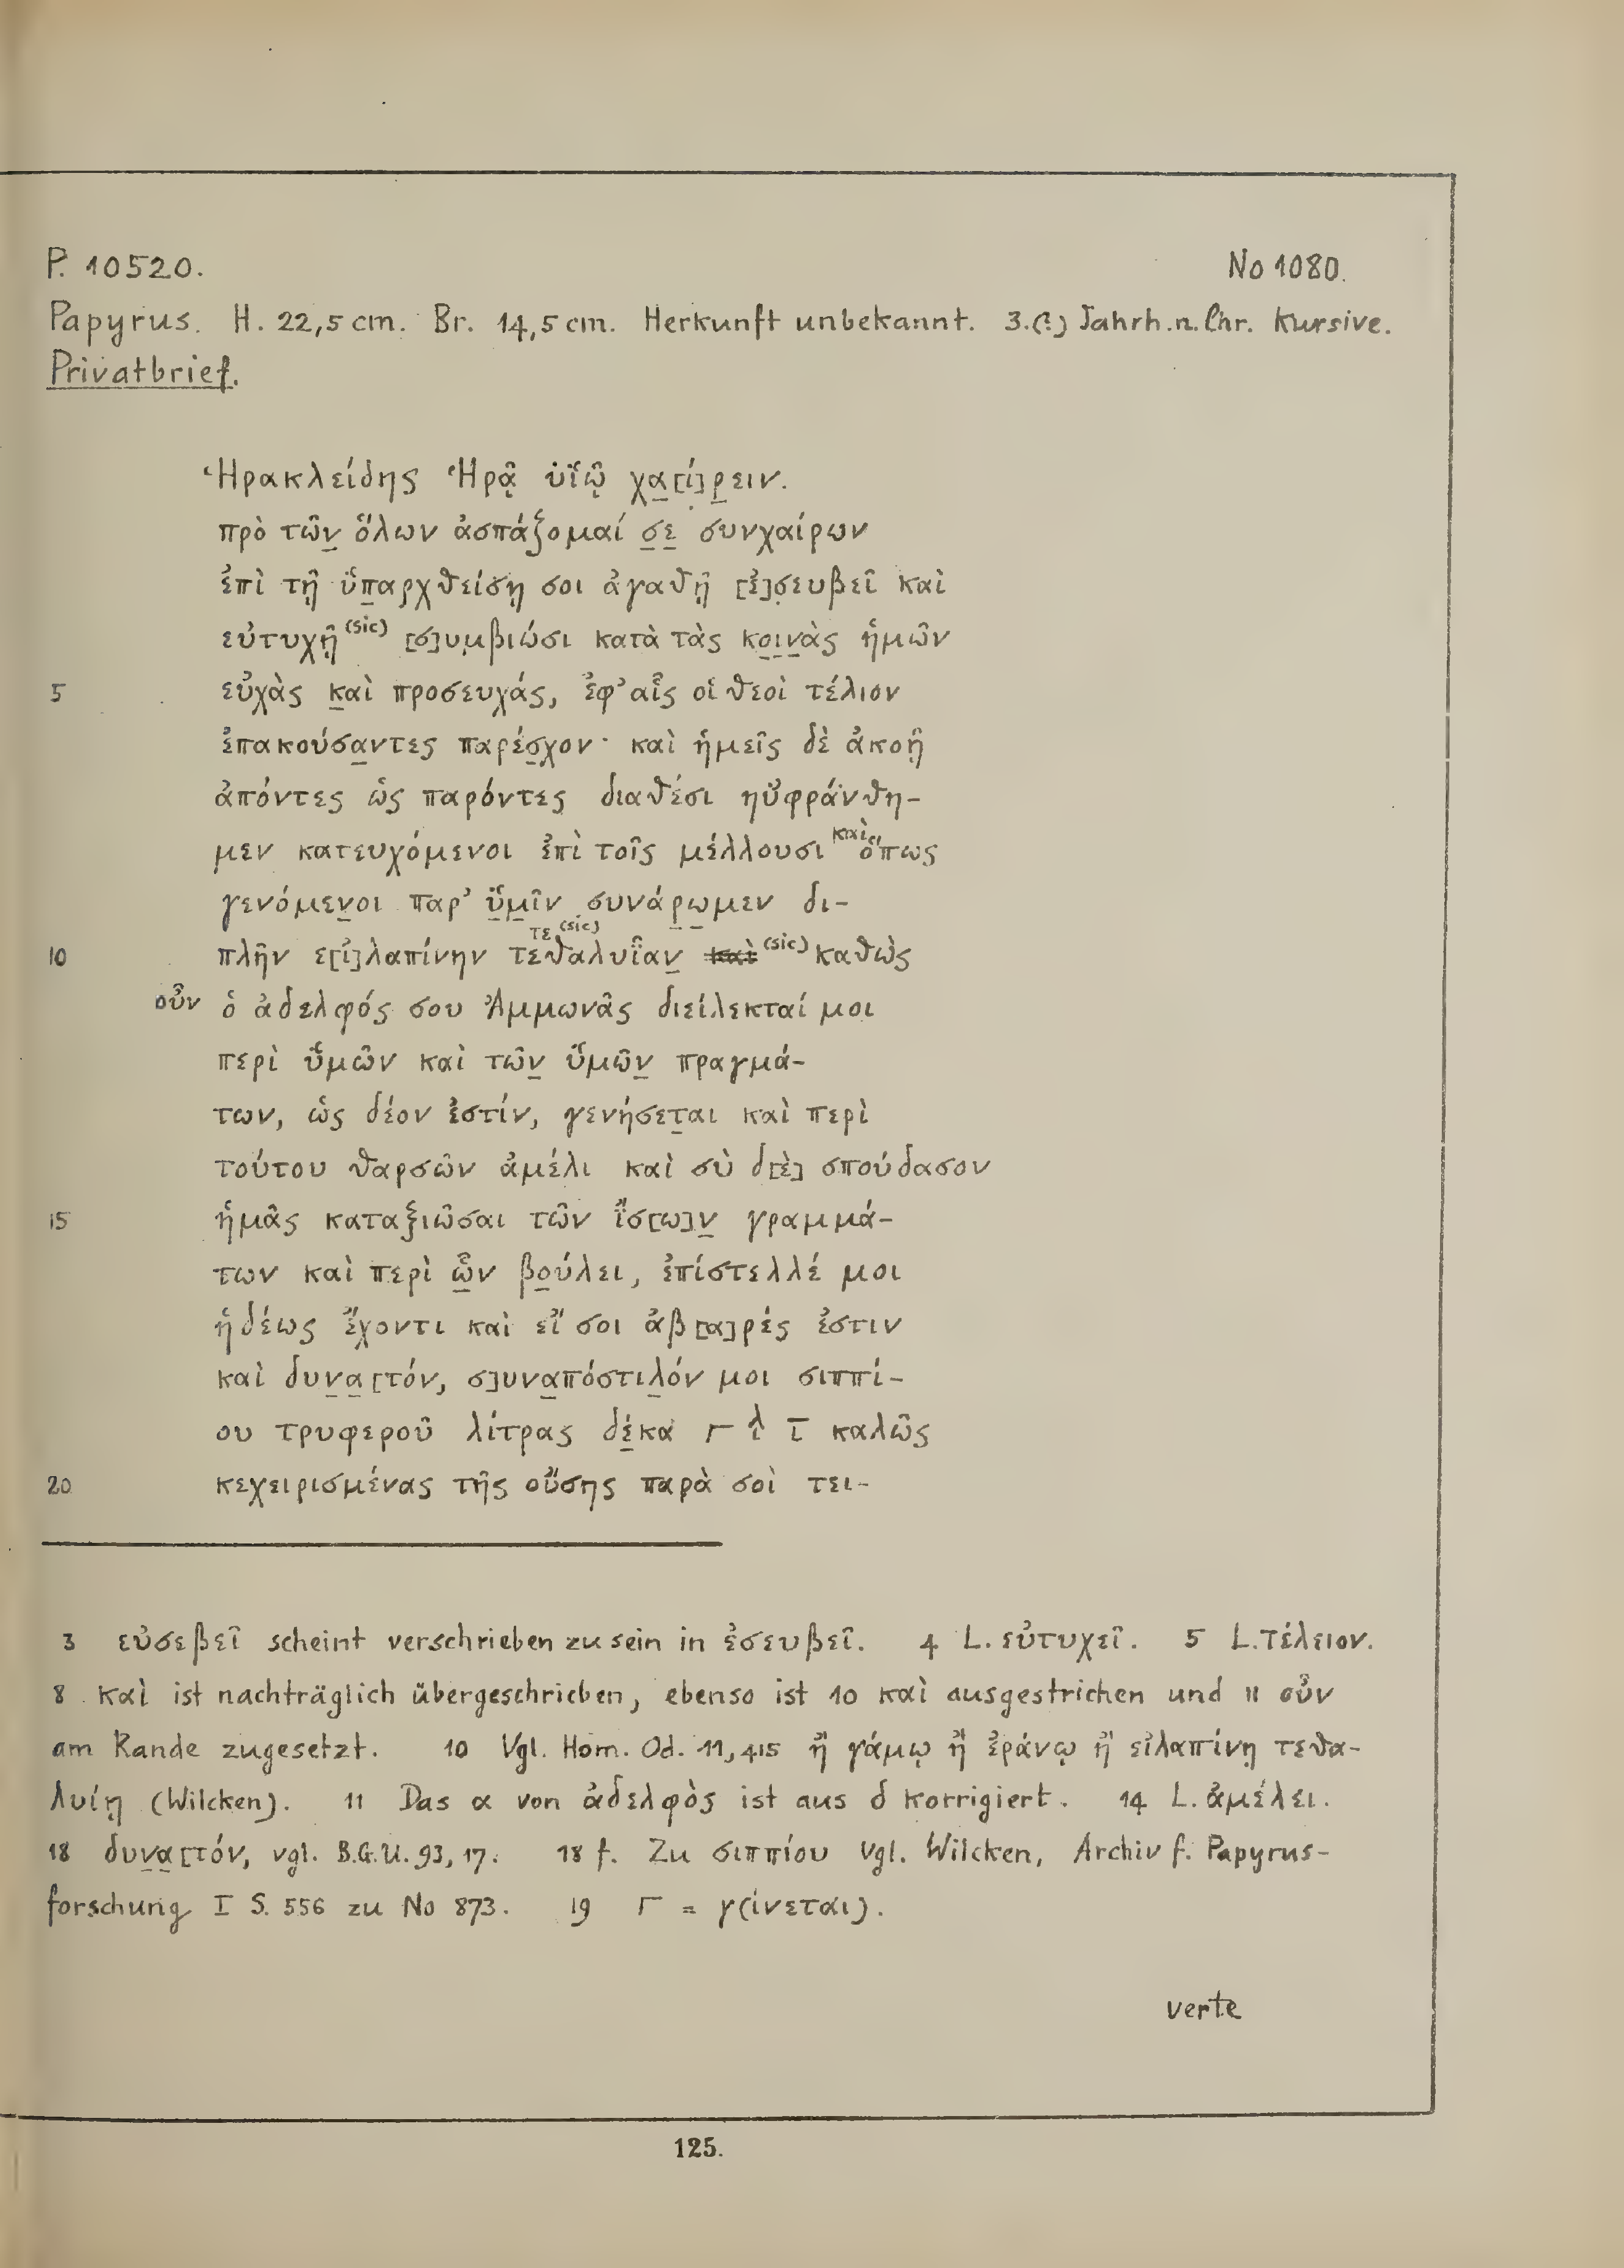 P. 10520. No 1080.
Papyrus. H. 22,5 cm. Br. 14,5 cm. Herkunft unbekannt. 3.(?) Jahrh. n. Chr. Kursive.
Privatbrief.
Ἡρακλείδης Ἡρᾷ ὑϊῷ χα̣[ί]ρ̣ειν.
πρὸ τῶν̣ ὅλων ἀσπάζομαί σ̣ε̣ συνχαίρων
ἐπὶ τῇ ὑ̈π̣αρχθείσῃ σοι ἀγαθῇ [ἐ]σ̣ευβεῖ καὶ
εὐτυχῇ (sic) [σ]υμβιώσι κατὰ τὰς κο̣ι̣ν̣ὰς ἡμῶν
5 εὐχὰς κ̣αὶ προσευχάς, ἐφ' αἷς οἱ θεοὶ τέλιον
ἐπακούσα̣ντες παρέσ̣χον· καὶ ἡμεῖς δὲ ἀκοῇ
ἀπόντες ὡς παρόντες διαθέσι ηὐφράνθη-
μεν κατευχόμενοι ἐπὶ τοῖς μέλλουσι καὶ ὅπως
γενόμεν̣οι παρ' ὑ̣̈μ̣ῖν συνάρ̣ω̣μεν δι-
τε (sic)
10 πλῆν ε[ἰ]λαπίνην τεθαλυῖαν̣ καὶ (sic) καθὼς
οὖν ὁ ἀδελφός σου Ἀμμωνᾶς διείλεκταί μοι
περὶ ὑ̈μῶν καὶ τῶν̣ ὑ̈μῶν̣ πραγμά-
των, ὡς δέον ἐστίν, γενήσετ̣αι καὶ περὶ
τούτου θαρσῶν ἀμέλι καὶ σὺ δ[ὲ] σπούδασον
15 ἡμᾶς καταξιῶσαι τῶν ἴ̈σ[ω]ν̣ γραμμά-
των καὶ περὶ ὧ̣ν βο̣ύλει, ἐπίστελλέ μοι
ἡδέως ἔχοντι καὶ εἴ σοι ἀβ[α]ρές ἐστιν
καὶ δυν̣α̣[τόν, σ]υνα̣πόστιλ̣όν μοι σιππί-
ου τρυφεροῦ λίτρας δέ̣κα Γ λ ῑ καλῶς
20 κεχειρισμένας τῆς οὔσης παρὰ σοὶ τει-
3 εὐσεβεῖ scheint verschrieben zu sein in ἐσευβεῖ. 4 L. εὐτυχεῖ. 5 L. τέλειον.
8 καὶ ist nachträglich übergeschrieben, ebenso ist 10 καὶ ausgestrichen und 11 οὖν
am Rande zugesetzt. 10 Vgl. Hom. Od. 11,415 ἢ γάμῳ ἢ ἐράνῳ ἢ εἰλαπίνῃ τεθα-
λυίῃ (Wilcken). 11 Das α von ἀδελφὸς ist aus δ korrigiert. 14 L. ἀμέλει.
18 δυν̣α̣[τόν, vgl. B.G.U. 93, 17. 18 f. Zu σιππίου vgl. Wilcken, Archiv f. Papyrus-
forschung I S. 556 zu No 873. 19 Γ = γ(ίνεται).
verte
125.